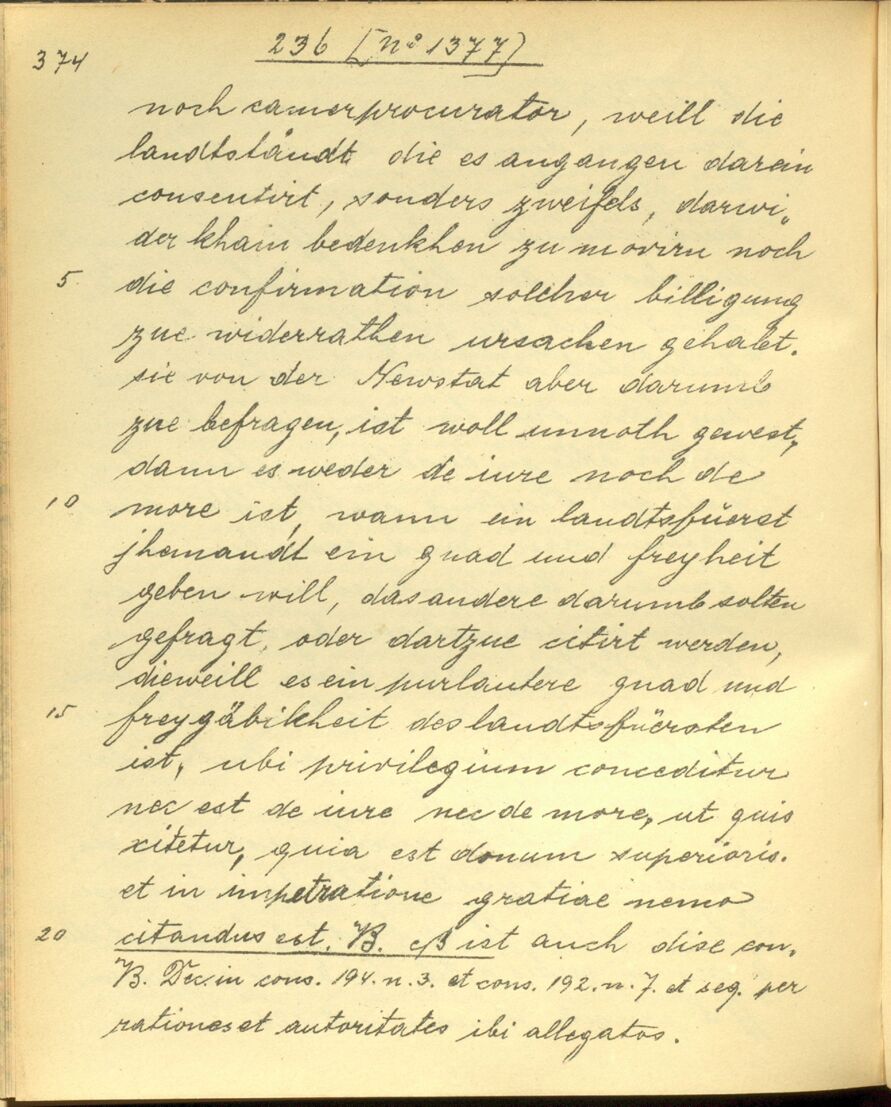 374
236 [nº 1377]
noch camerprocurator, weill die
landtständt die es angangen darein
consentirt, sonders zweifels, darwi„
der khain bedenkhen zu moviru noch
5 die confirmation solcher billigung
zue widerrathen ursachen gehabt.
sie von der Newstat aber darumb
zue befragen, ist woll unnoth gewest,
dann es weder de iure noch de
10 more ist, wann ein landtsfüerst
jhemandt ein gnad und freyheit
geben will, das andere darumb solten
gefragt, oder dartzue citirt werden,
dieweill es ein purlautere gnad und
15 freygäbikheit des landtsfüersten
ist, ubi privilegium conceditur
nec est de iure nec de more, ut quis
citetur, quia est donum superioris.
et in impetratione gratiae nemo
20 citandus est. B. eß ist auch dise con„
B. Dec. in cons. 194. n. 3. et cons. 192. n. 7. et seq. per
rationes et autoritates ibi allegatos.